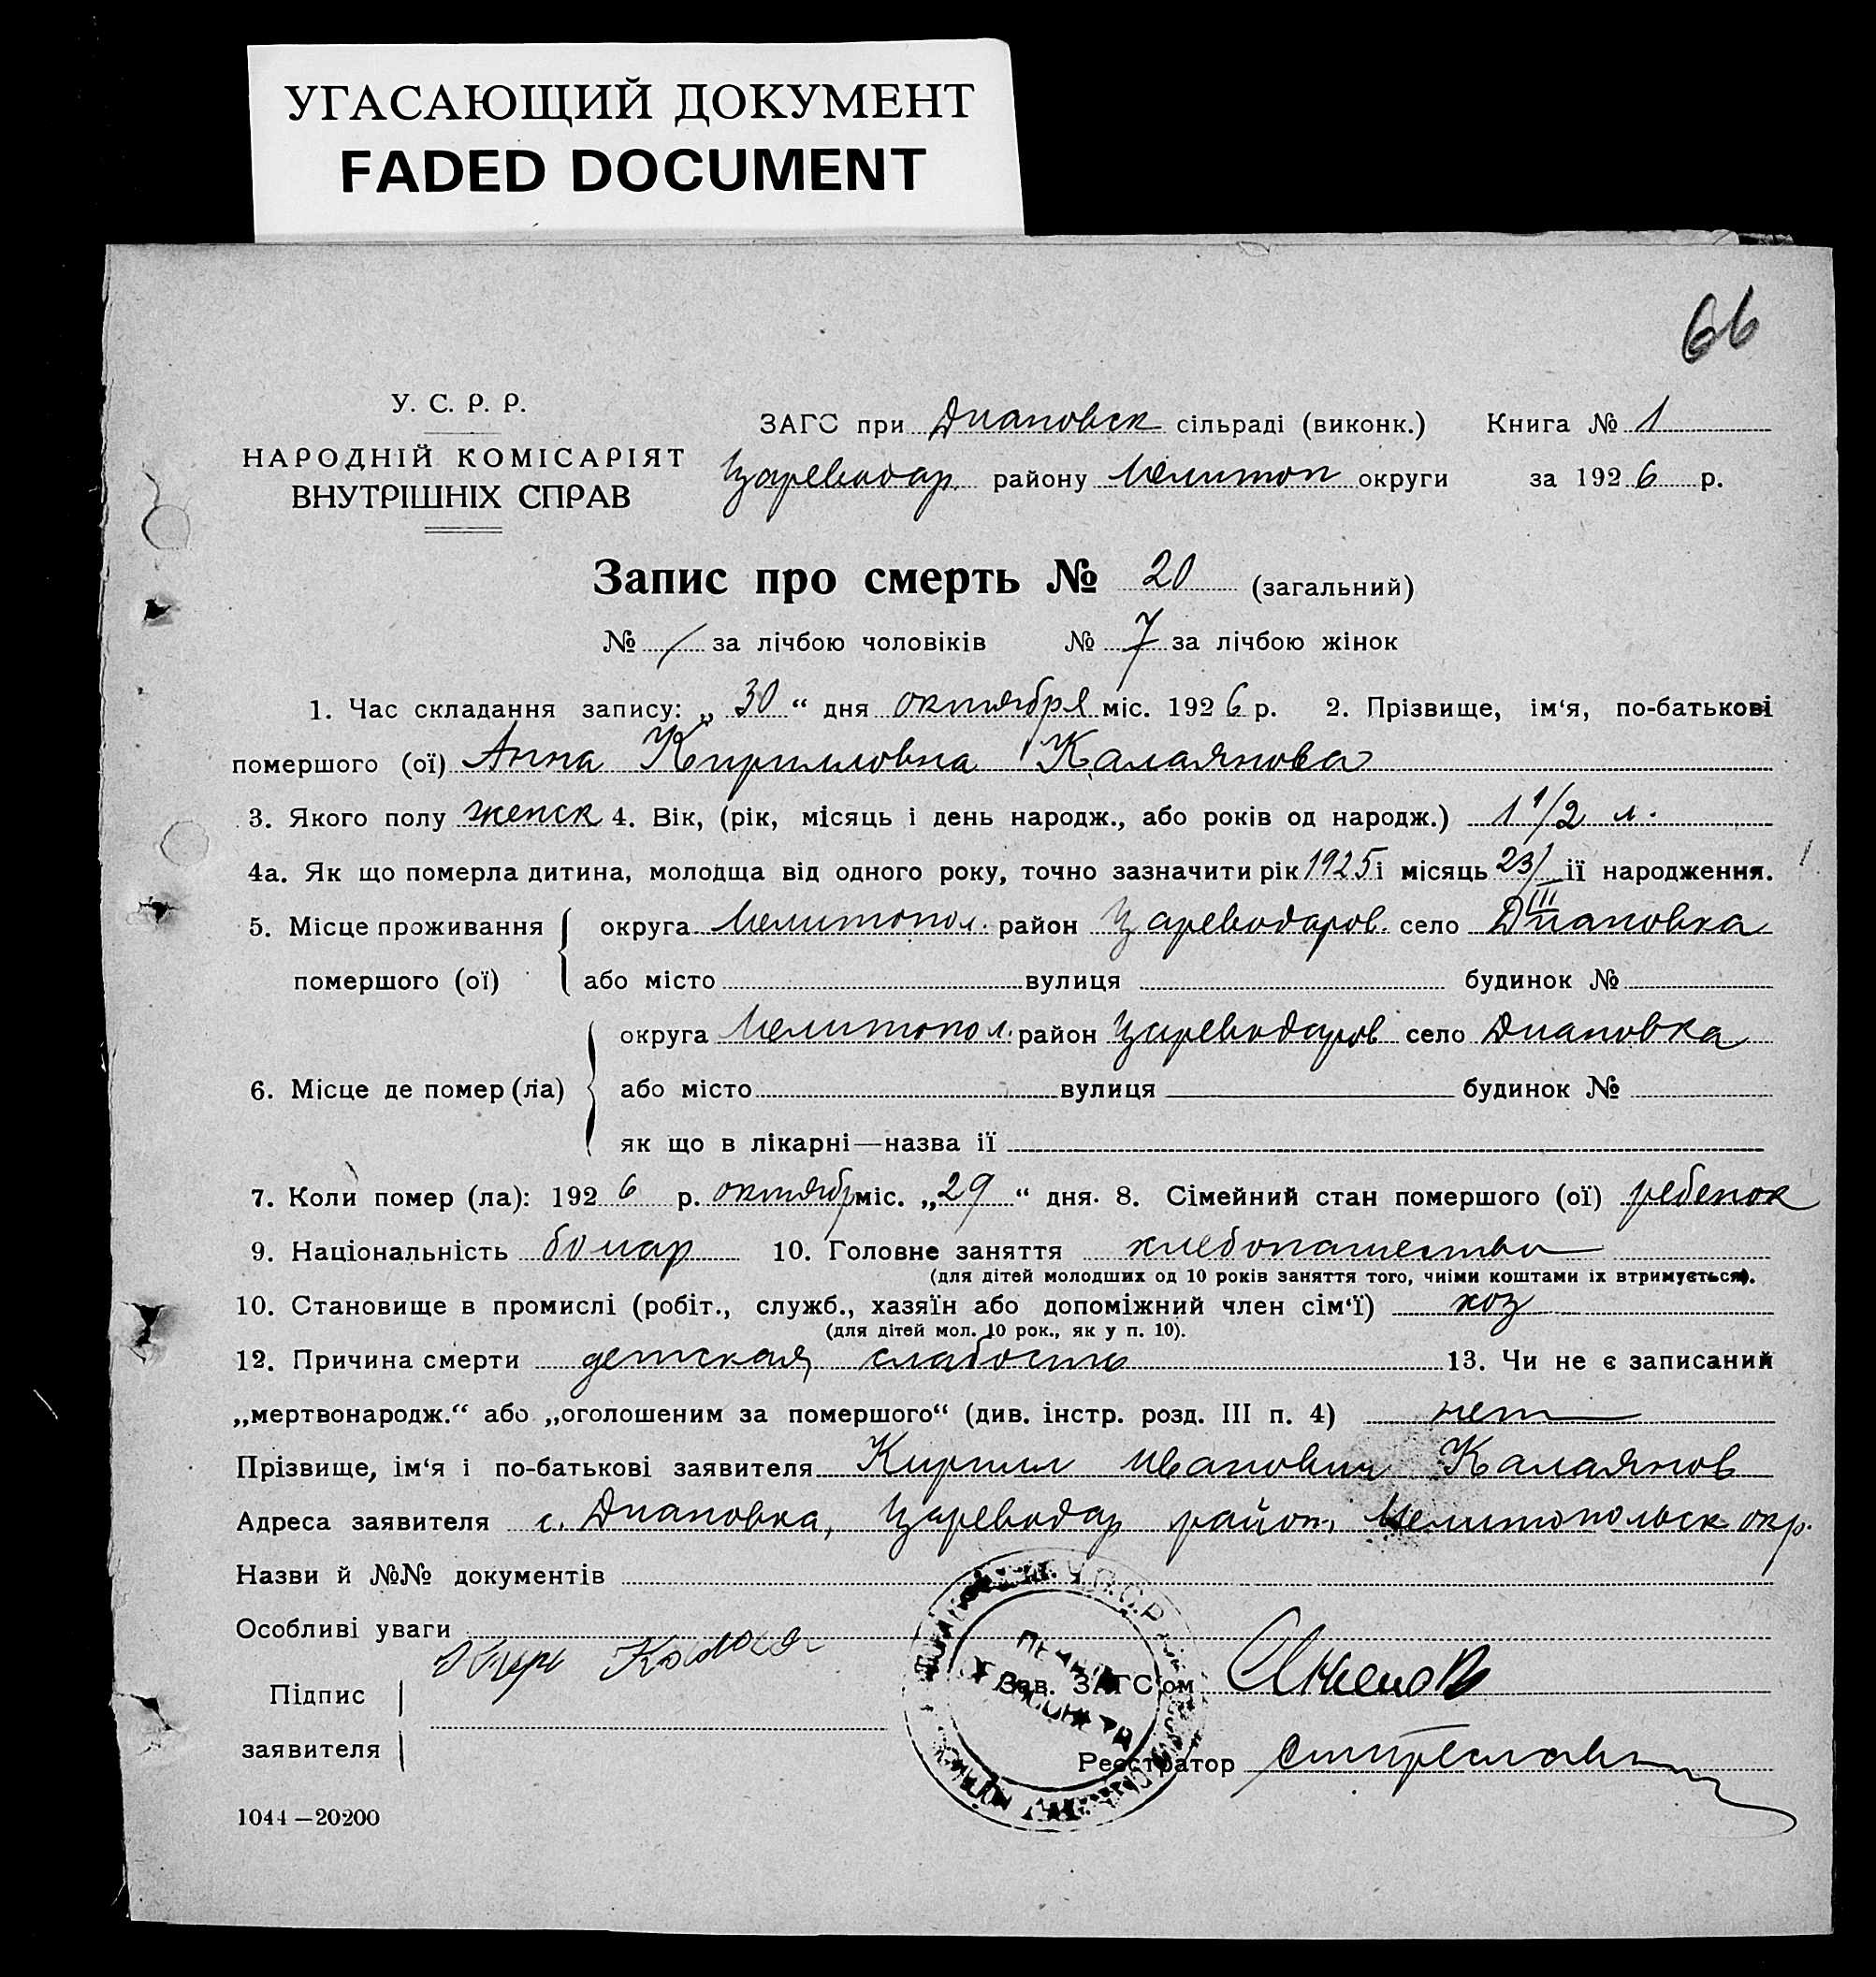 УГАСАЮЩИЙ ДОКУМЕНТ
FADED DOCUMENT
66
У. С. Р. Р.
НАРОДНІЙ КОМІСАРІЯТ
ВНУТРІШНІХ СПРАВ
ЗАГС при Диановск сільраді (виконк.) Книга № 1
Цареводар. району Мелитоп округи за 1926 р.
Запис про смерть № 20 (загальний)
№ / за лічбою чоловіків № 7 за лічбою жінок
1. Час складання запису: „30“ дня октября міс. 1926 р. 2. Прізвище, ім‘я, по-батькові
помершого (ої) Анна Кирилловна Калаянова
3. Якого полу женск 4. Вік, (рік, місяць і день народж., або років од народж.) 1 1/2 л.
4а. Як що померла дитина, молодща від одного року, точно зазначити рік 1925 і місяць 23/III ії народження.
5. Місце проживання помершого (ої) округа Мелитопол. район Цареводаров. село Диановка
або місто вулиця будинок №
6. Місце де помер (ла) округа Мелитопол. район Цареводаров село Диановка
або місто вулиця будинок №
як що в лікарні—назва ії
7. Коли помер (ла): 1926 р. октябр міс. „29“ дня. 8. Сімейний стан помершого (ої) ребенок
9. Національність болгар 10. Головне заняття хлебопашество
(для дітей молодших од 10 років заняття того, чиїми коштами їх втримується).
10. Становище в промислі (робіт., служб., хазяїн або допоміжний член сім‘ї) хоз
(для дітей мол. 10 рок., як у п. 10).
12. Причина смерти детская слабость 13. Чи не є записаний
„мертвонародж.“ або „оголошеним за помершого“ (див. інстр. розд. III п. 4) нет
Прізвище, ім‘я і по-батькові заявителя Кирилл Иванович Калаянов
Адреса заявителя с. Диановка, Цареводар район, Мелитопольск окр.
Назви й №№ документів
Особливі уваги
Підпис
заявителя
Зав. ЗАГС‘ом
Реєстратор
1044—20200